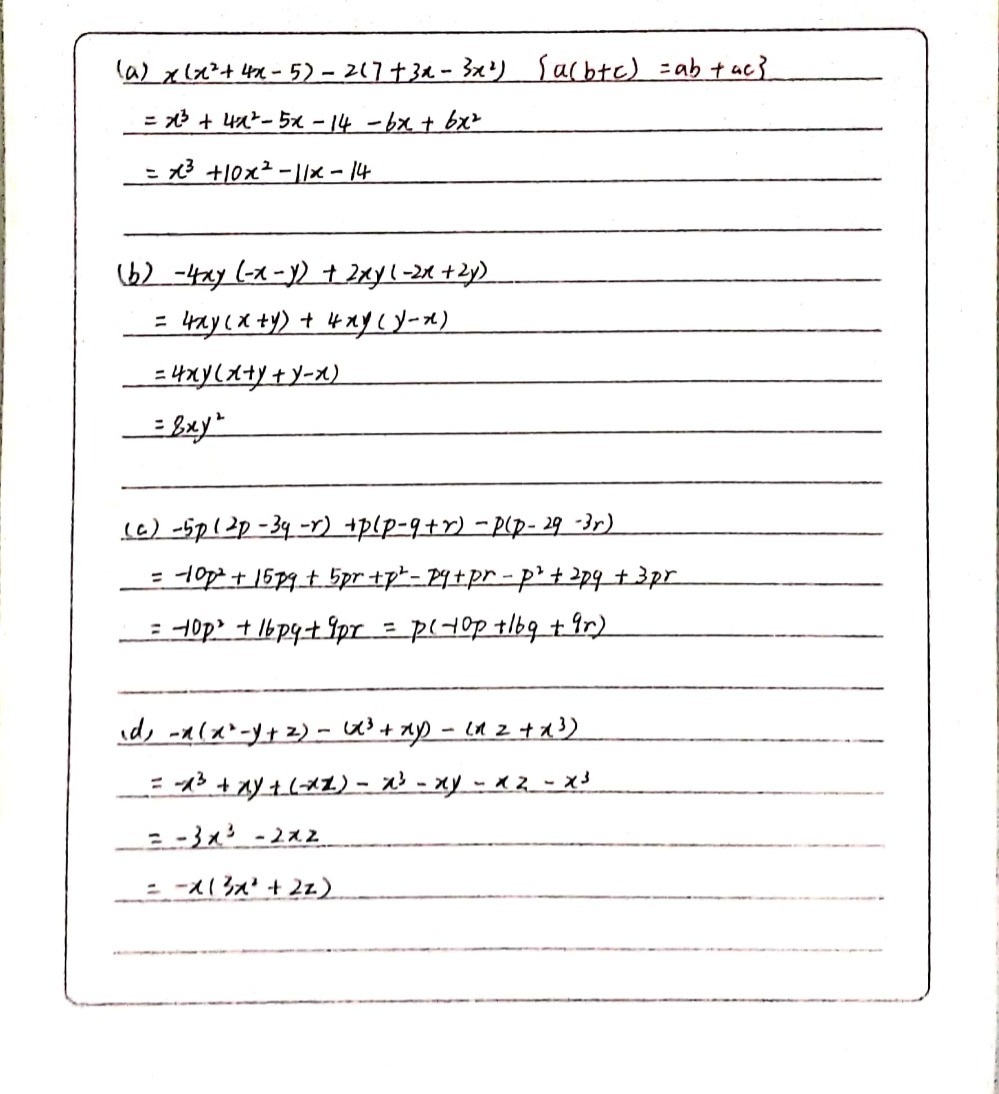 (a) x(x²+4x-5)-2(7+3x-3x²) {a(b+c) =ab+ac}
= x³ + 4x²-5x-14 -6x+ 6x²
= x³ +10x²-11x-14
(b) -4xy(-x-y) + 2xy(-2x+2y)
= 4xy(x+y) + 4xy(y-x)
=4xy(x+y+y-x)
= 8xy²
(c) -5p(2p-3q-r) +p(p-q+r) -p(p-2q-3r)
= -10p²+15pq+5pr+p²-pq+pr-p²+2pq+3pr
= -10p² +16pq+9pr = p(-10p+16q+9r)
(d) -x(x²-y+z)-(x³+xy)-(xz+x³)
= -x³+xy+(-xz)-x³-xy-xz-x³
= -3x³-2xz
= -x(3x²+2z)